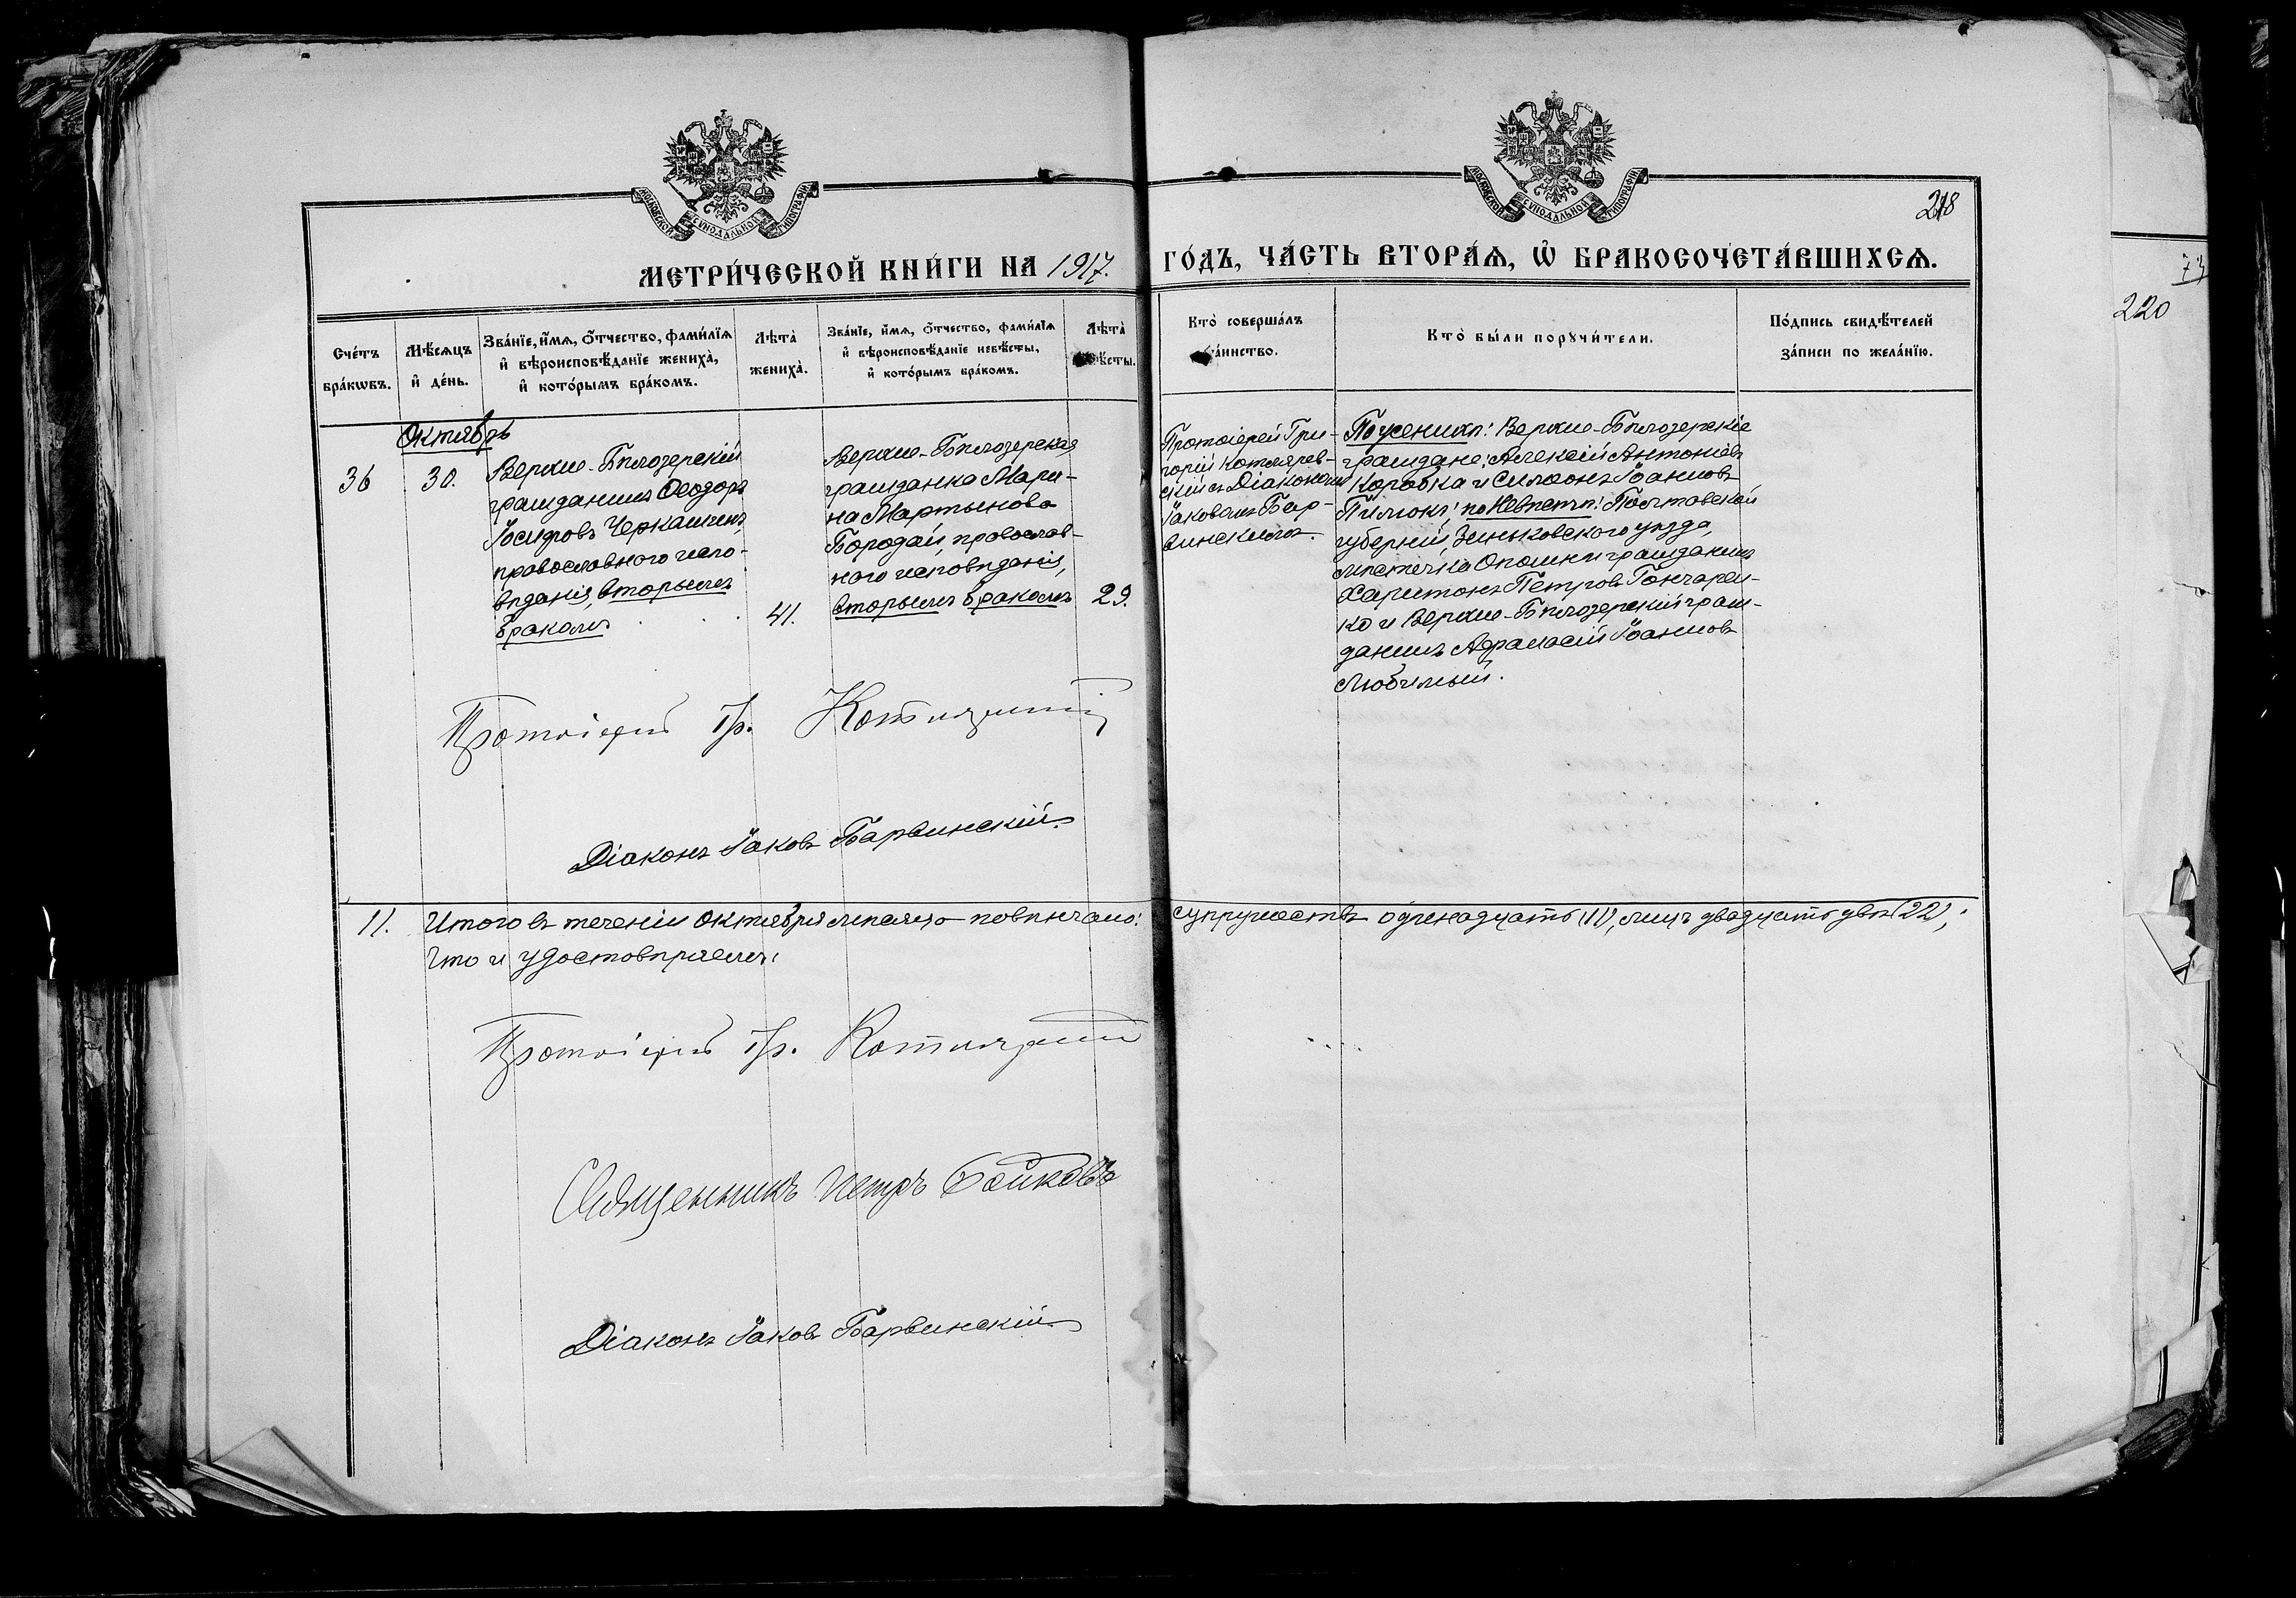 МОСКОВСКОЙ СѴНОДАЛЬНОЙ ТИПОГРАФІИ
МОСКОВСКОЙ СѴНОДАЛЬНОЙ ТИПОГРАФІИ
218
МЕТРИ́ЧЕСКОЙ КНИ́ГИ НА 1917. ГО́ДЪ, ЧА́СТЬ ВТОРА́Ѧ, Ѽ БРАКОСОЧЕТА́ВШИХСѦ.
73
220
Сче́тъ
бра́кѡвъ.
Мѣ́сѧцъ
и҆ де́нь.
Зва́нїе, и҆́мѧ, ѻ҆́тчество, фами́лїѧ
и҆ вѣроисповѣ́данїе жениха̀,
и҆ кото́рымъ бра́комъ.
Лѣта̀
жениха̀.
Зва́нїе, и҆́мѧ, ѻ҆́тчество, фами́лїѧ
и҆ вѣроисповѣ́данїе невѣ́сты,
и҆ кото́рымъ бра́комъ.
Лѣта̀
невѣ́сты.
Кто̀ соверша́лъ
та́инство.
Кто̀ бы́ли порꙋчи́тели.
По́дпись свидѣ́телей
за́писи по жела́нїю.
Октябрь
36
30.
Верхне-Бѣлозерскій
гражданинъ Ѳеодоръ
Іосифовъ Черкашинъ,
православного испо-
вѣданія, вторымъ
бракомъ.
41.
Верхне-Бѣлозерская
гражданка Мари-
на Мартынова
Бородай, православ-
ного исповѣданія,
вторымъ бракомъ
29.
Протоіерей Гри-
горій Котлярев-
скій съ Діакономъ
Іаковомъ Бар-
винскимъ.
По женихѣ: Верхне-Бѣлозерскіе
граждане: Алексій Антоніевъ
Коробка и Симеонъ Іоанновъ
Пилюкъ; по Невѣстѣ: Полтавской
губерніи, Зиньковского уѣзда,
мѣстечка Опошни гражданинъ
Харитонъ Петровъ Гончарен-
ко и Верхне-Бѣлозерскій граж-
данинъ Афанасій Іоанновъ
Любимый.
Протоіерей Гр. Котляревскій
Діаконъ Іаковъ Барвинскій.
11. Итого въ теченіи октября мѣсяца повѣнчано: супружествъ одинадцать (11), лицъ двадцать двѣ (22),
что и удостовѣряемъ:
Протоіерей Гр. Котляревскій
Священникъ Петръ Бойковъ
Діаконъ Іаковъ Барвинскій